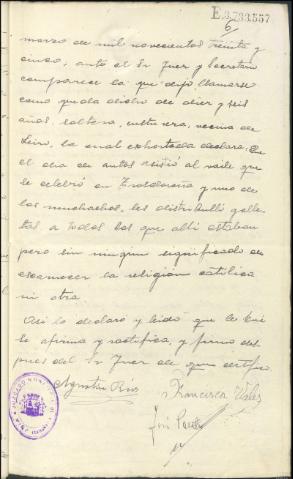 E3.733.557
6
marzo de mil novecientos treinta y
cinco, ante el Sr Juez y Secretario
comparece la que dijo llamarse
como queda dicho de diez y seis
años, soltera, vecina de
Leiro, la cual exhortada declara: Que
el dia de autos asistió al baile que
se celebró en y uno de
los muchachos, les distribuyó galle-
tas a todos los que alli estaban
pero sin ningun significado de
escarnecer la religión catolica
ni otra.
Asi lo declaró y leido que le fué
se afirma y ratifica, y firma des-
pues del Sr Juez de que certifico
Agustin Rios
Francisca
José